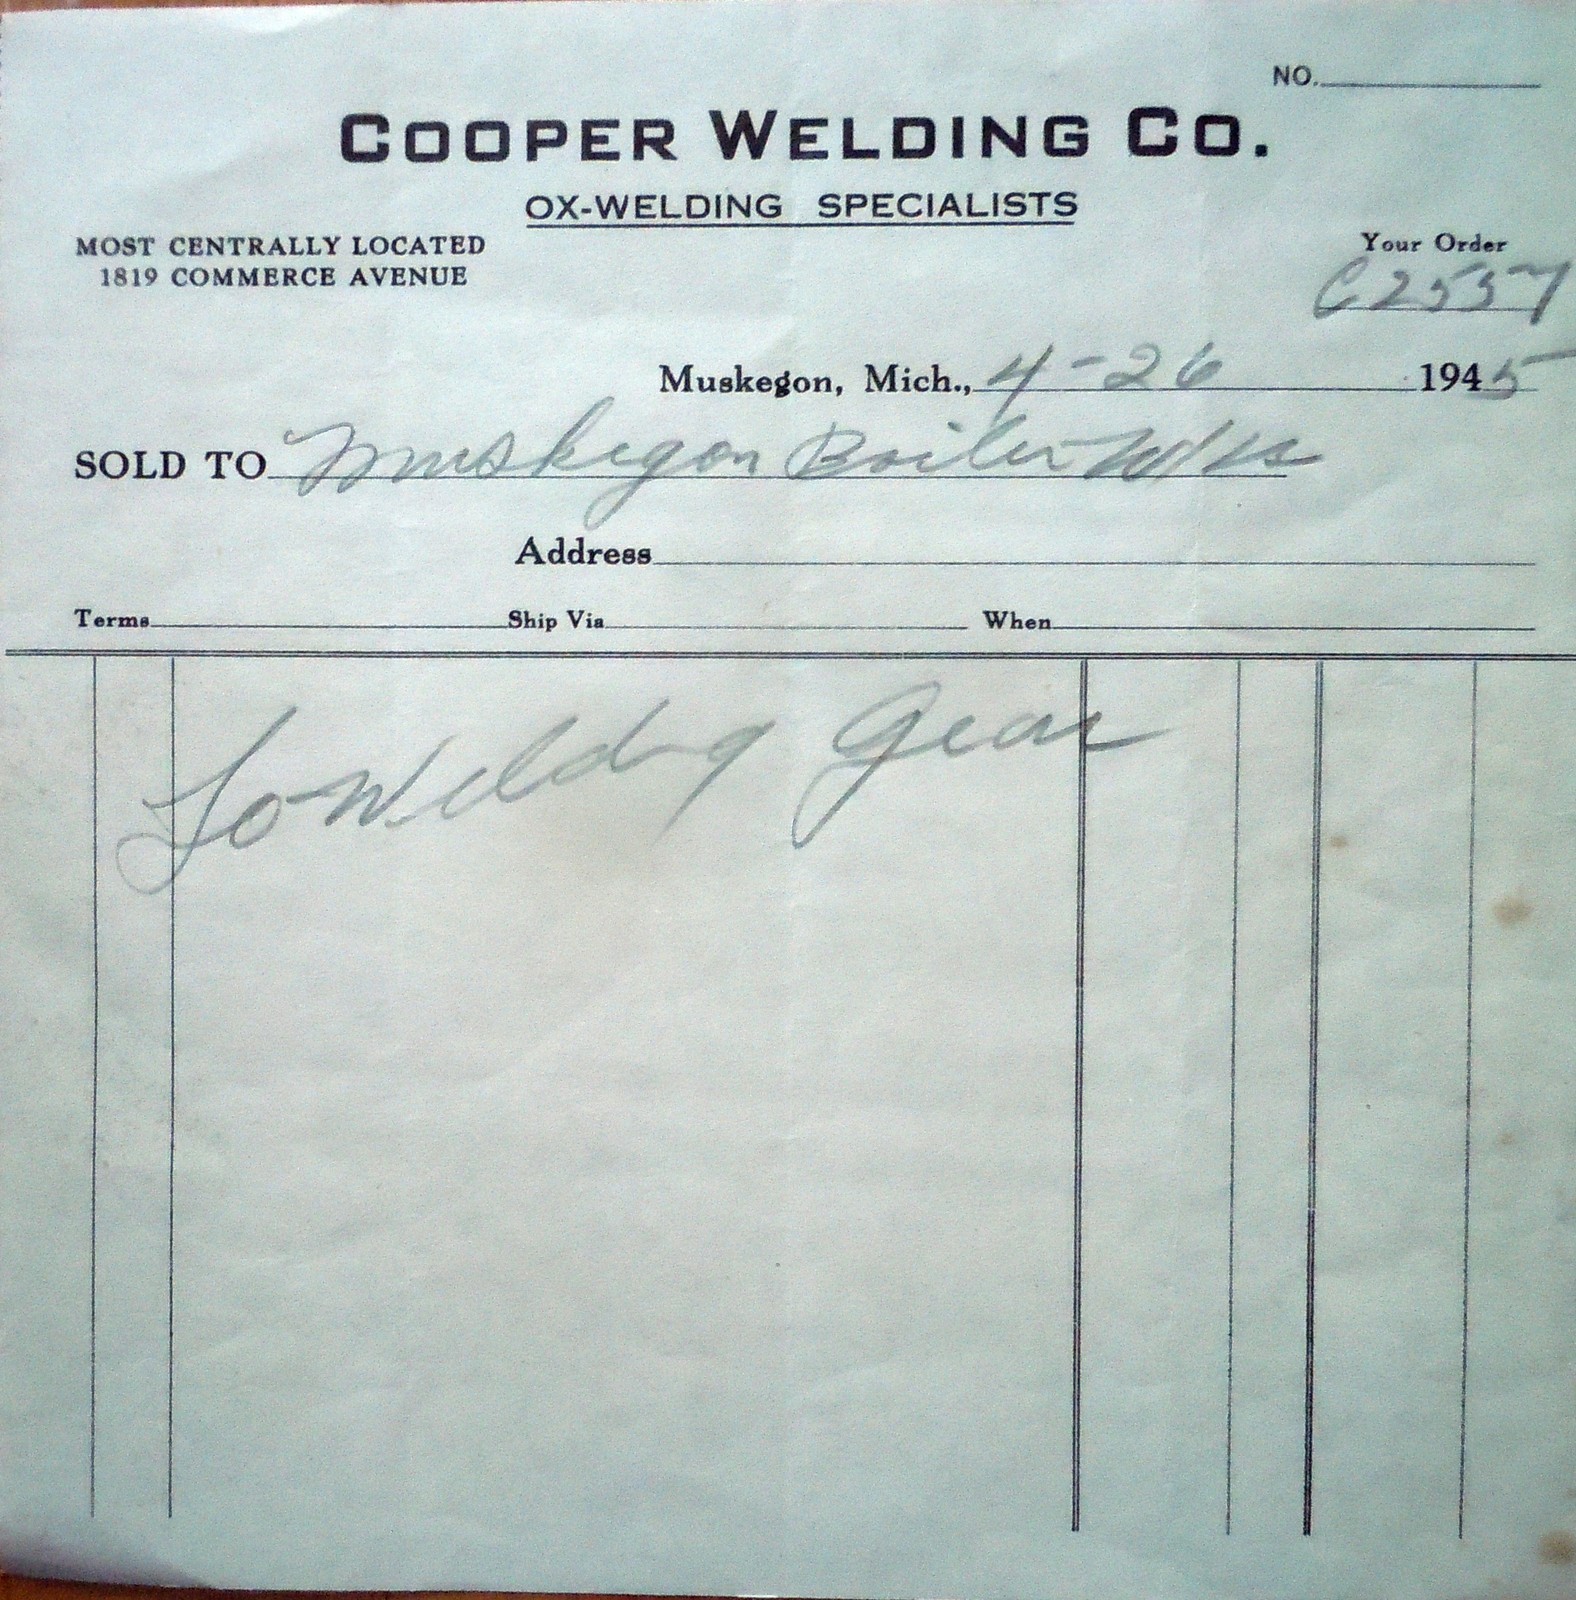 NO.
COOPER WELDING CO.
OX-WELDING SPECIALISTS
MOST CENTRALLY LOCATED
1819 COMMERCE AVENUE
Your Order
C2557
Muskegon, Mich., 4-26 1945
SOLD TO Muskegon Boiler Wks
Address
Terms Ship Via When
To Welding Gear